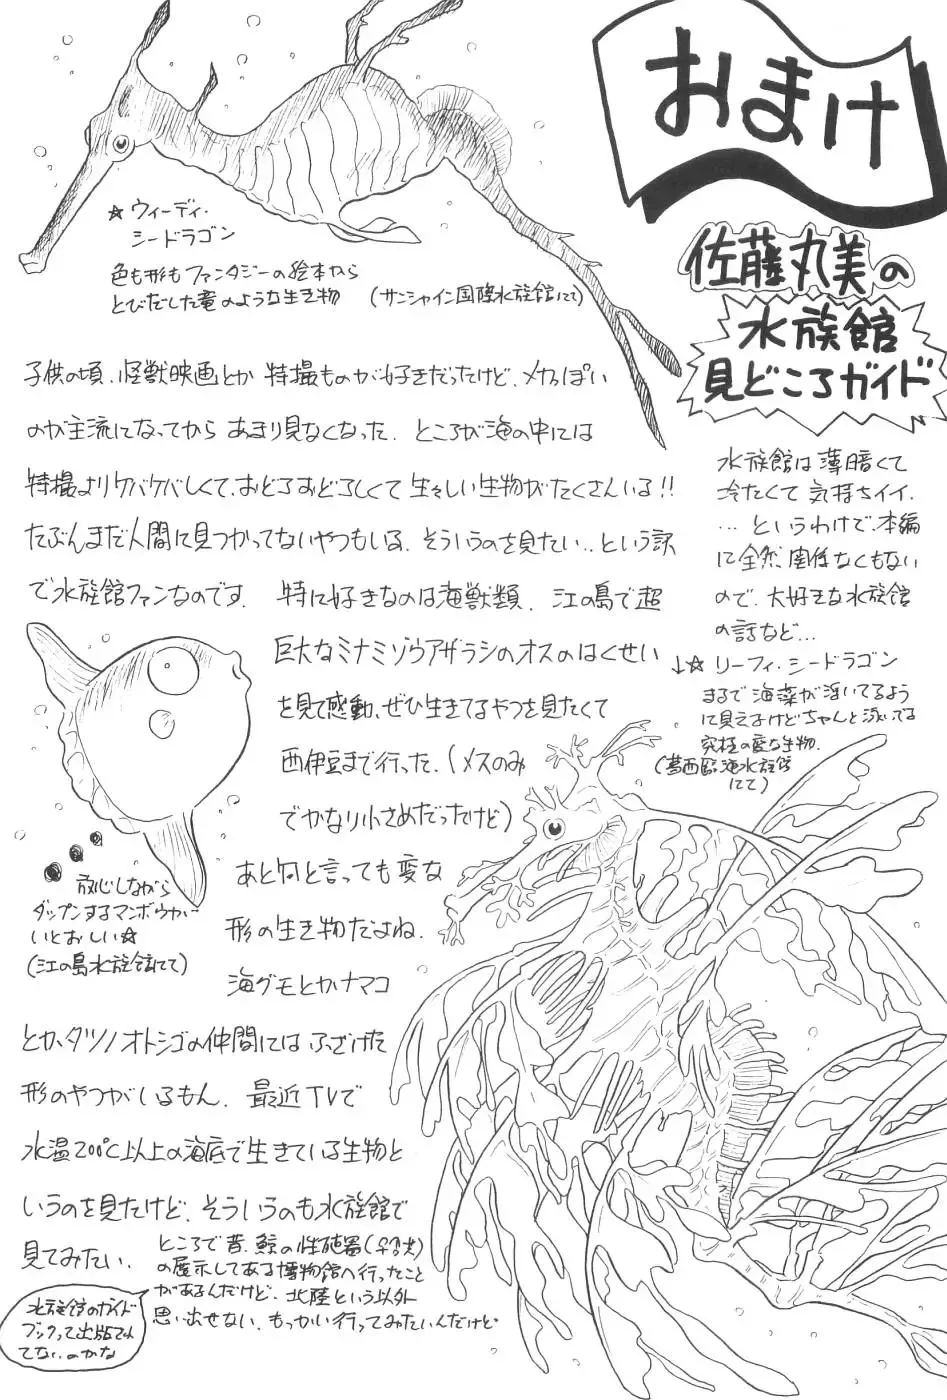 おまけ
佐藤丸美の
水族館
見どころガイド
水族館は薄暗くて
冷たくて気持ちイイ.
…というわけで、本編
に全然関係なくもない
ので、大好きな水族館
の話など…
☆ウィーディ・
シードラゴン
色も形もファンタジーの絵本から
とびだした竜のような生き物 (サンシャイン国際水族館にて)
子供の頃、怪獣映画とか特撮ものが好きだったけど、メカっぽい
のが主流になってからあまり見なくなった. ところが海の中には
特撮よりケバケバしくて、おどろおどろしくて生々しい生物がたくさんいる!!
たぶんまだ人間に見つかってないやつもいる. そういうのを見たい‥という訳
で水族館ファンなのです. 特に好きなのは海獣類. 江の島で超
巨大なミナミゾウアザラシのオスのはくせい
を見て感動、ぜひ生きてるやつを見たくて
西伊豆まで行った.(メスのみ
でかなり小さめだったけど)
あと何と言っても変な
形の生き物だよね.
海グモとかナマコ
とか、タツノオトシゴの仲間にはふざけた
形のやつがいるもん. 最近TVで
水温200℃以上の海底で生きている生物と
いうのを見たけど、そういうのも水族館で
見てみたい.
↓☆リーフィ・シードラゴン
まるで海藻が浮いてるよう
に見えるけどちゃんと泳いでる
究極の変な生物.
(葛西臨海水族館
にて)
放心しながら
ダップンするマンボウがい
いとおしい☆
(江の島水族館にて)
ところで昔、鯨の性殖器(♀♂共)
の展示してある博物館へ行ったこと
があるんだけど、北陸という以外
思い出せない. もっかい行ってみたいんだけど
水族館のガイド
ブックって出版され
てないのかな